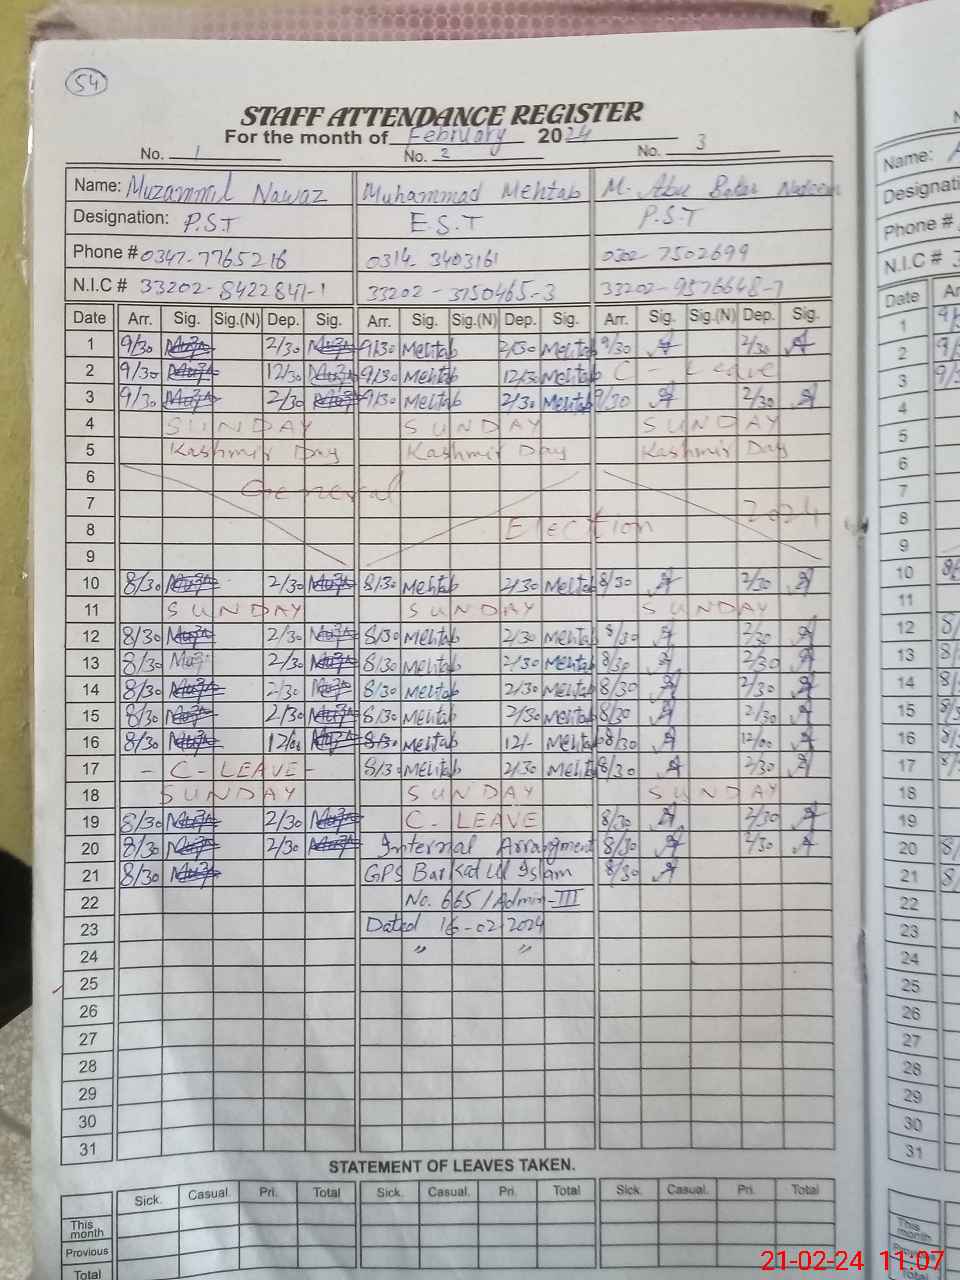 54
STAFF ATTENDANCE REGISTER
For the month of February 2024
No. 1 No. 2 No. 3
Name: Muzammil Nawaz Muhammad Mehtab M. Abu Bakar Nadeem
Designation: P.S.T E.S.T P.S.T
Phone # 0347-7765216 0314-3403161 0302-7502699
N.I.C # 33202-8422841-1 33202-3750465-3 33202-9576648-7
Date Arr. Sig. Sig.(N) Dep. Sig. Arr. Sig. Sig.(N) Dep. Sig. Arr. Sig. Sig.(N) Dep. Sig.
1 9/30 2/30 9/30 Mehtab 2/30 Mehtab 9/30 2/30
2 9/30 12/30 9/30 Mehtab 12/30 Mehtab C - Leave
3 9/30 2/30 9/30 Mehtab 2/30 Mehtab 9/30 2/30
4 SUNDAY SUNDAY SUNDAY
5 Kashmir Day Kashmir Day Kashmir Day
6 General
7 2024
8 Election
9
10 8/30 2/30 8/30 Mehtab 2/30 Mehtab 8/30 2/30
11 SUNDAY SUNDAY SUNDAY
12 8/30 2/30 8/30 Mehtab 2/30 Mehtab 8/30 2/30
13 8/30 2/30 8/30 Mehtab 2/30 Mehtab 8/30 2/30
14 8/30 2/30 8/30 Mehtab 2/30 Mehtab 8/30 2/30
15 8/30 2/30 8/30 Mehtab 2/30 Mehtab 8/30 2/30
16 8/30 12/00 8/30 Mehtab 12/- Mehtab 8/30 12/00
17 - C - LEAVE - 8/30 Mehtab 2/30 Mehtab 8/30 2/30
18 SUNDAY SUNDAY SUNDAY
19 8/30 2/30 C. LEAVE 8/30 2/30
20 8/30 2/30 Internal Arrangment 8/30 2/30
21 8/30 GPS Barkat Ul Islam 8/30
22 No. 665/Admin-III
23 Dated 16-02-2024
24 " "
25
26
27
28
29
30
31
STATEMENT OF LEAVES TAKEN.
Sick. Casual. Pri. Total Sick. Casual. Pri. Total Sick. Casual. Pri. Total
This month
Provious
Total
Name:
Designati
Phone #
N.I.C # 3
Date
1
2
3
4
5
6
7
8
9
10
11
12
13
14
15
16
17
18
19
20
21
22
23
24
25
26
27
28
29
30
31
This month
21-02-24 11:07